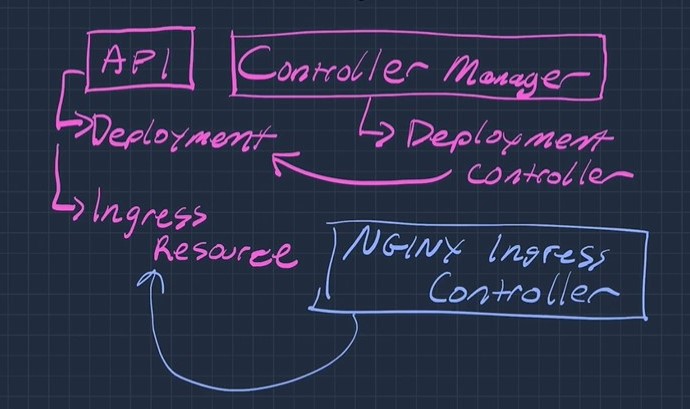 API
Controller Manager
Deployment
Deployment
Controller
Ingress
Resource
NGINX Ingress
Controller